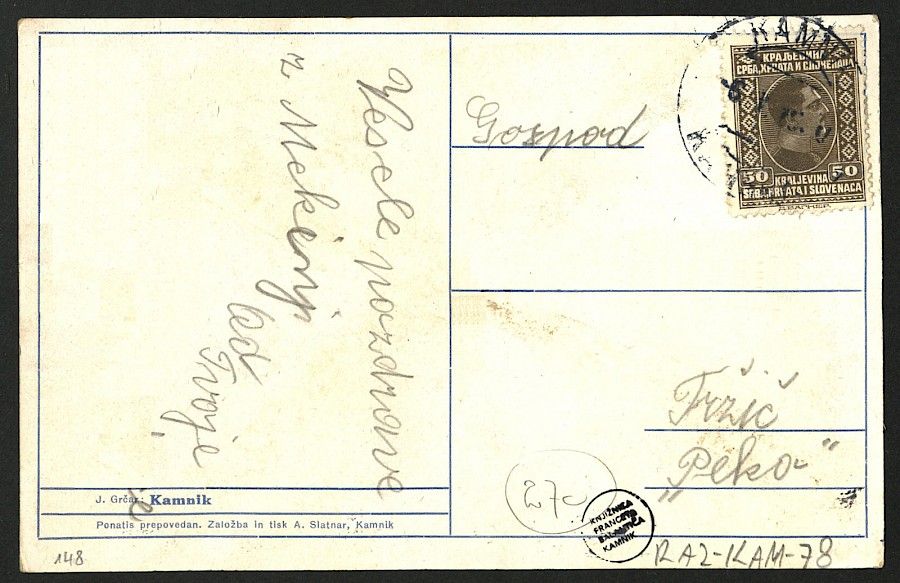 Vesele pozdrave
z Mekinj
od
Tvoje
Gospod
Tržič
„Peko“
KAMNIK
КРАЉЕВИНА
СРБА, ХРВАТА И СЛОВЕНАЦА
50 KRALJEVINA 50
SRBA, HRVATA I SLOVENACA
J. Grčar: Kamnik
Ponatis prepovedan. Založba in tisk A. Slatnar, Kamnik
148
KNJIŽNICA
FRANCETA
BALANTIČA
KAMNIK
RAZ-KAM-78